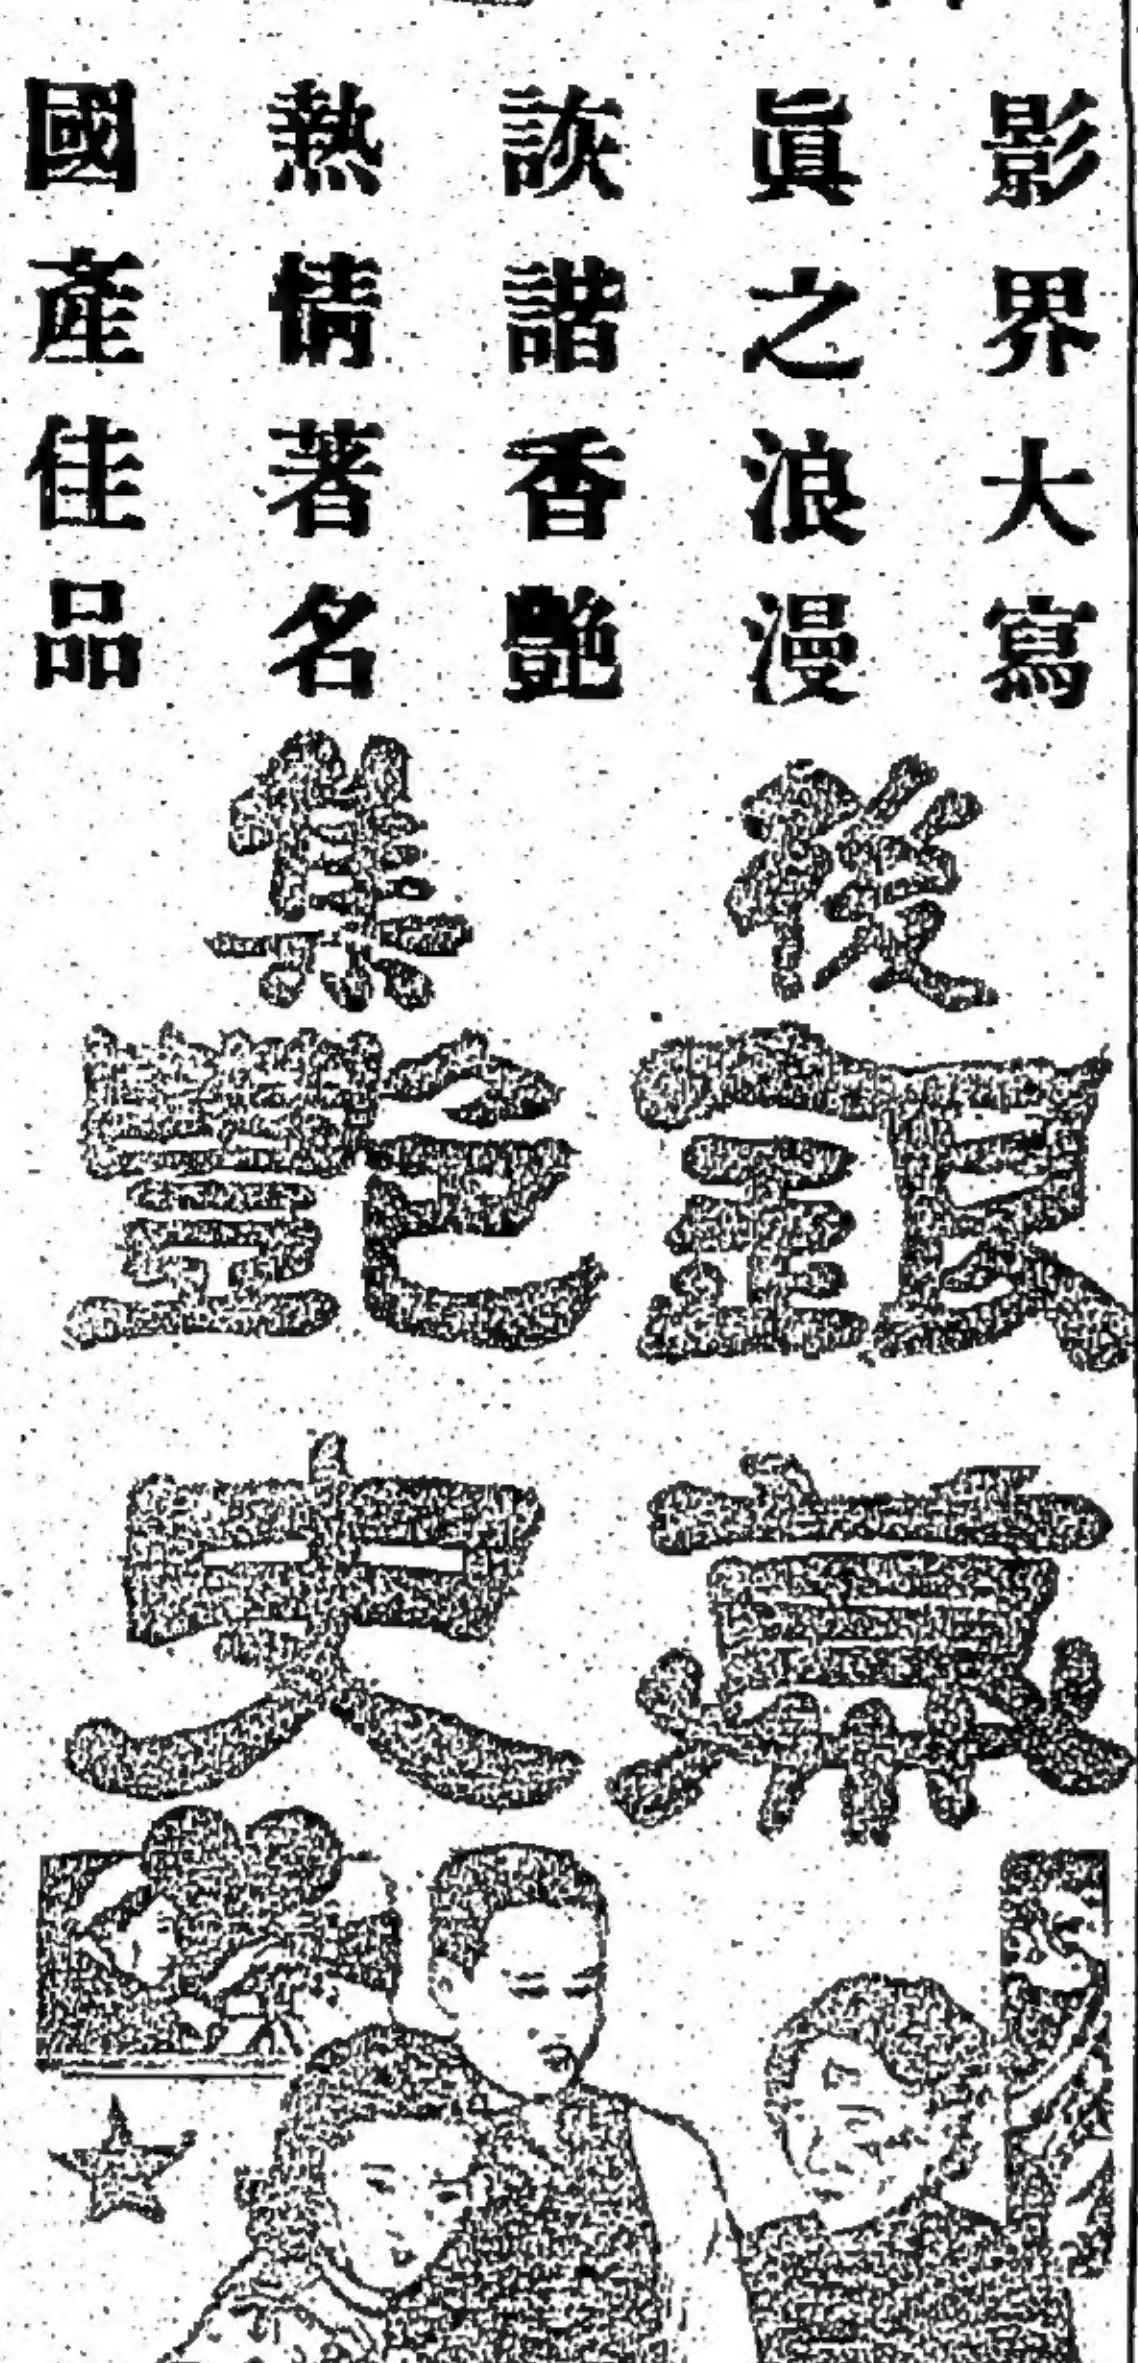 影界大寫
眞之浪漫
詼諧香艷
熱情著名
國產佳品
後集
銀幕
艷史